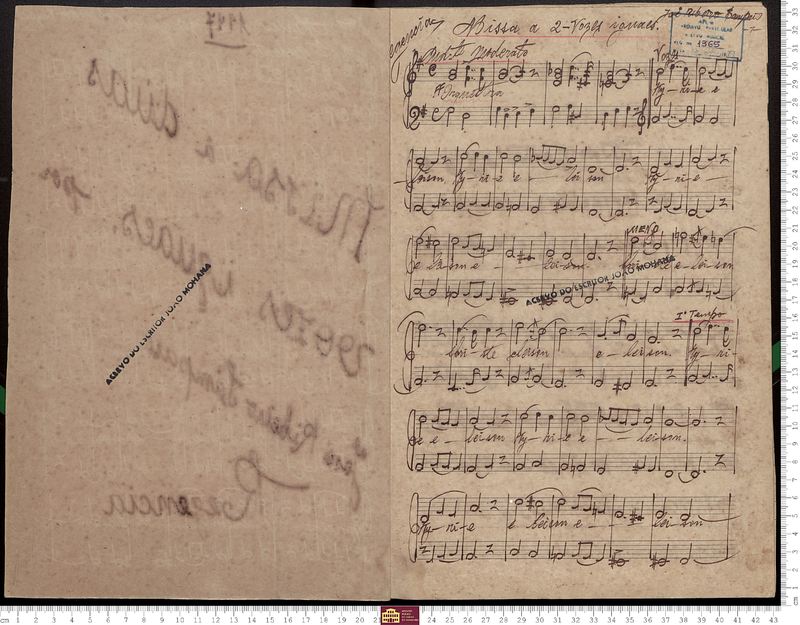 1147
Missa a duas
vozes iguaes, por
José Ribeiro Sampaio
Regencia
ACERVO DO ESCRITOR JOÃO MOHANA
Regencia
Missa a 2-Vozes iguaes.
José Ribeiro Sampaio
1365
Moderato
Vozes
Orquestra
Ky-ri-e e
leison Ky-ri-e e- lei son Ky-ri-e-
MENO
e leison e- lei-son e-lei-son
ACERVO DO ESCRITOR JOÃO MOHANA
1º Tempo
Chris-te eleison e-lei son. Ky-ri-
e e-leison Ky-ri-e e-leison.
Ky-ri-e e leison e- lei son